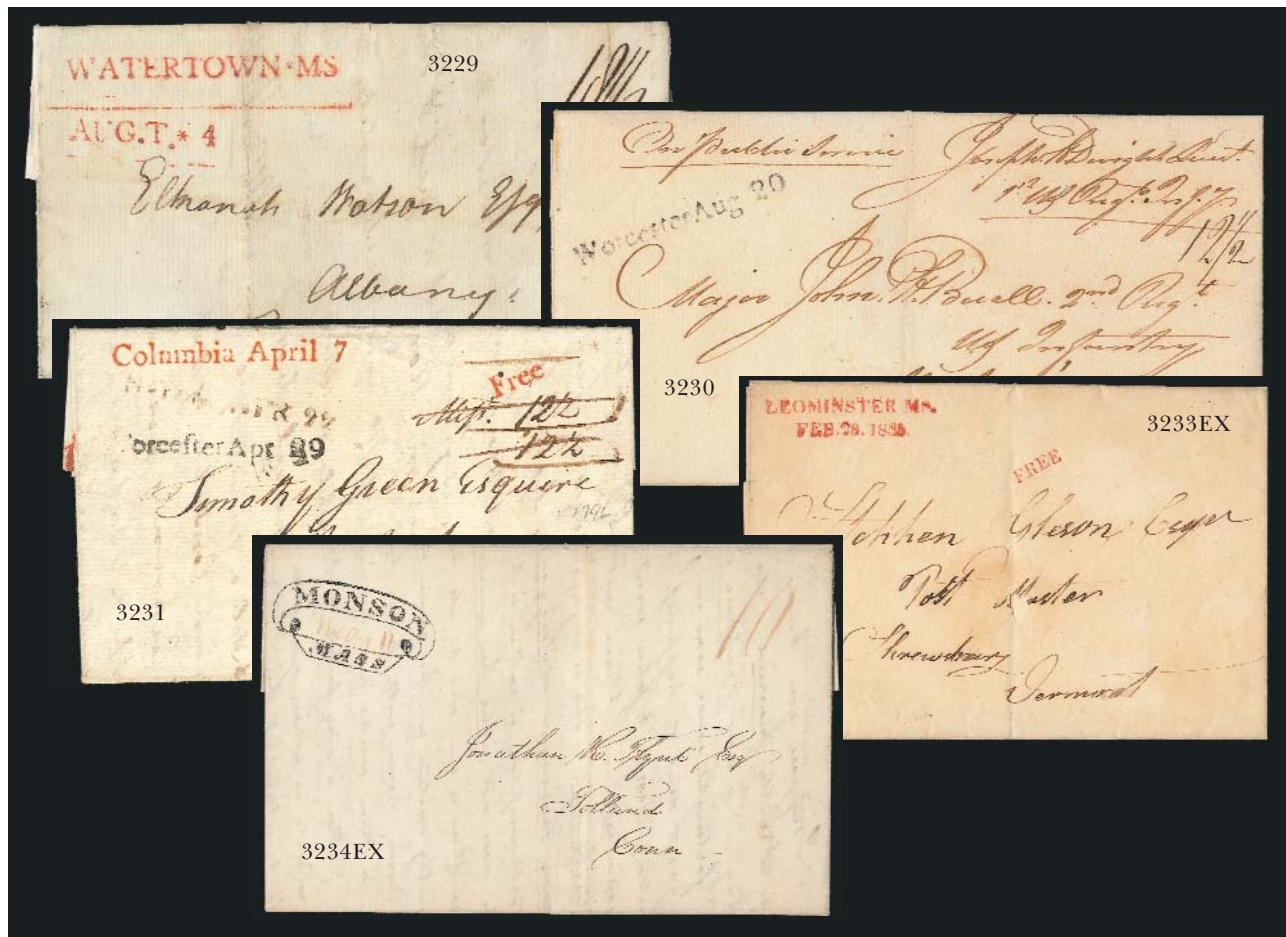 WATERTOWN·MS
3229
18½
AUG.T.* 4
Elkanah Watson Esq
Albany
On Public Service
Joseph Dwight Lieut.
1st US Regt
Worcester Aug 20
12½
Major John H. Buell. 2nd Regt
US Infantry
3230
Columbia April 7
Free
APR 22
Misst. 12½
orcester Apr 29
12½
Timothy Green Esquire
1796
3231
LEOMINSTER MS.
FEB. 28. 183
3233EX
FREE
Stephen Gleson Esqr
Post Master
Shrewsbury
Vermont
MONSON
MASS
10
Jonathan H. Flynt Esq
Tolland
Conn
3234EX